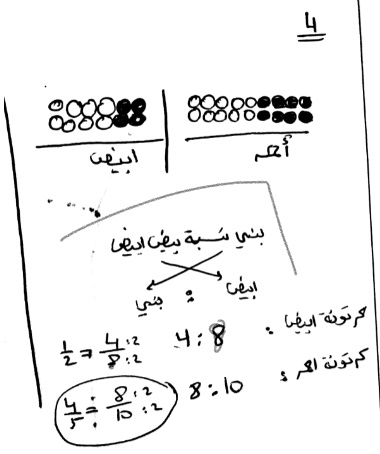 4
ابيض أحمر
بني نسبة بيض ابيض
ابيض : بني
كرتونة ابيض : 4:8 4:2/8:2 = 1/2
كرتونة احمر : 8:10 8:2/10:2 = 4/5